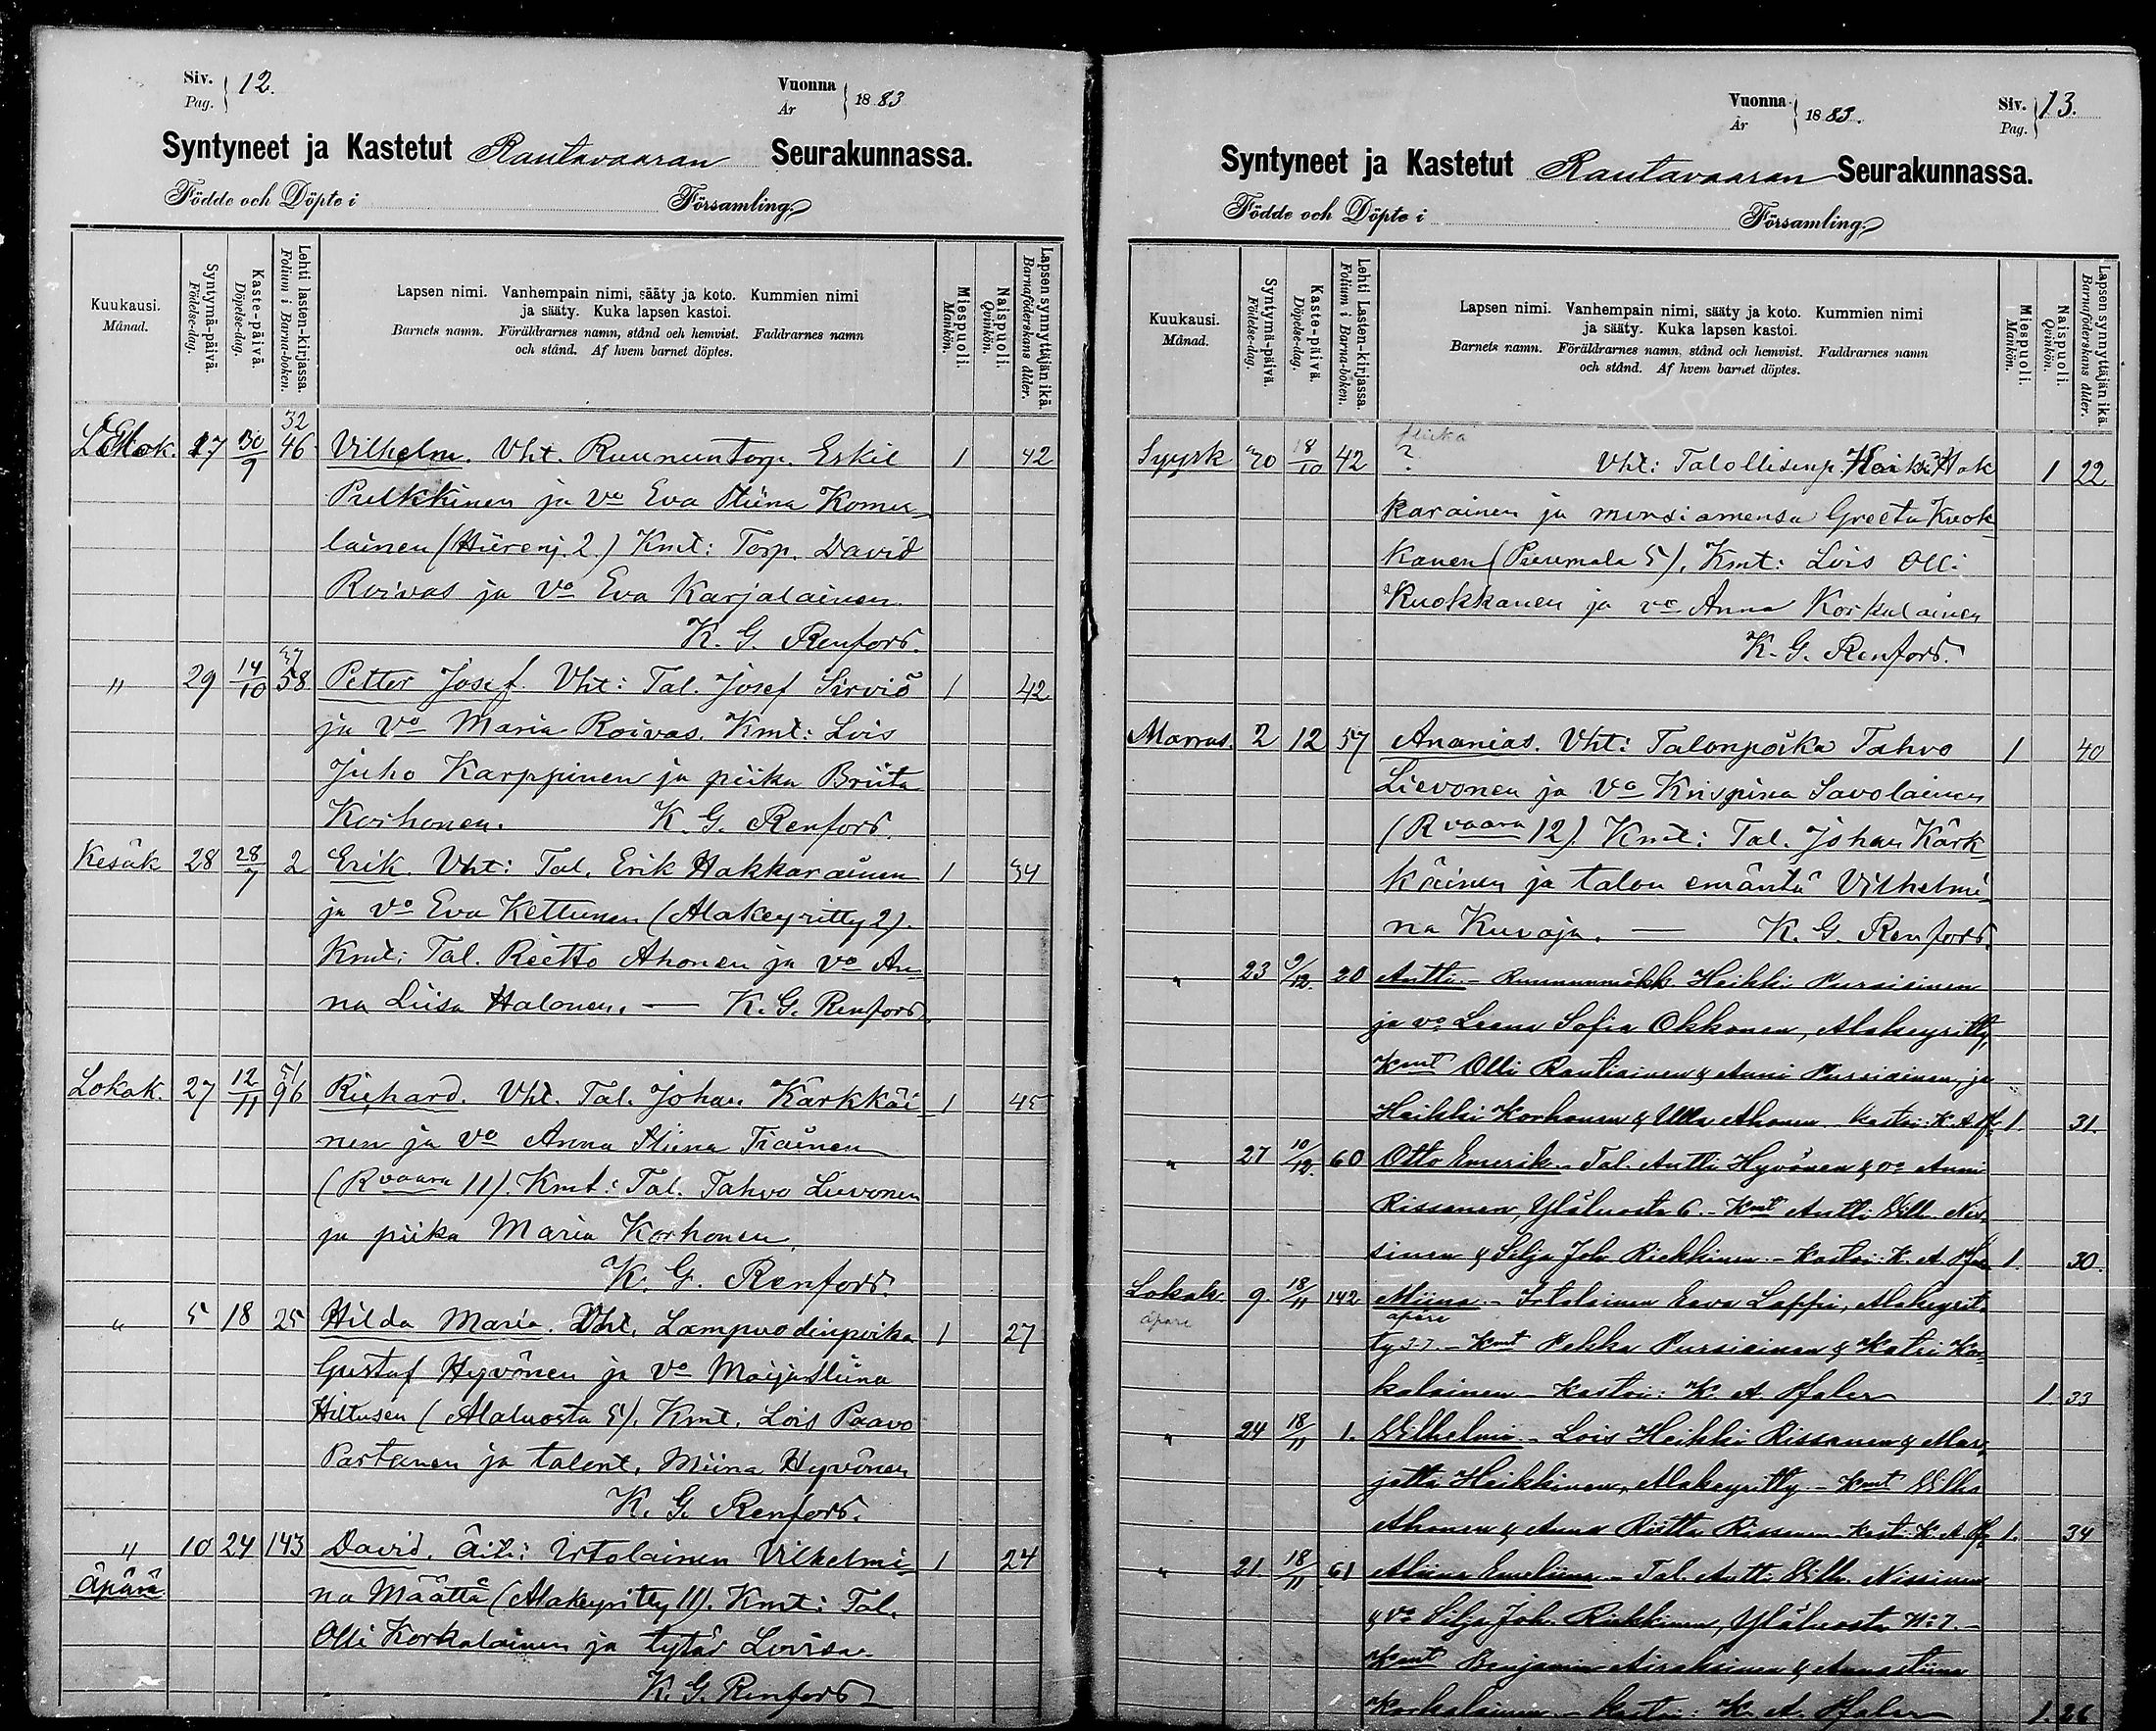 Siv. Pag. 12.
Vuonna År 1883
Syntyneet ja Kastetut Rautavaaran Seurakunnassa.
Födde och Döpte i Församling.
Kuukausi. Månad.
Syntymä-päivä. Födelse-dag.
Kaste-päivä. Döpelse-dag.
Lehti lasten-kirjassa. Folium i Barna-boken.
Lapsen nimi. Vanhempain nimi, sääty ja koto. Kummien nimi
ja sääty. Kuka lapsen kastoi.
Barnets namn. Föräldrarnes namn, stånd och hemvist. Faddrarnes namn
och stånd. Af hvem barnet döptes.
Miespuoli. Mankön.
Naispuoli. Qvinkön.
Lapsen synnyttäjän ikä. Barnaföderskans ålder.
32
Elok. 17 30/9 46 Vilhelm. Vht. Ruununtorp. Eskil 1 42
Pulkkinen ja vo Eva Stiina Komu-
lainen (Hiirenj. 2.) Kmt: Torp. David
Roivas ja Vo Eva Karjalainen.
K. G. Renfors.
37
" 29 14/10 58 Petter Josef. Vht: Tal. Josef Sirviö 1 42
ja Vo Maria Roivas. Kmt: Lois
Juho Karppinen ja piika Briita
Korhonen. K. G. Renfors.
Kesäk 28 28/7 2 Erik. Vht: Tal. Erik Hakkarainen 1 34
ja Vo Eva Kettunen (Alakeyritty 2).
Kmt: Tal. Reitto Ahonen ja Vo An-
na Liisa Halonen. — K. G. Renfors
51
Lokak. 27 12/11 96 Richard. Vht. Tal. Johan Kärkkäi 1 45
nen ja Vo Anna Stiina Tiainen
(Rvaara 11). Kmt: Tal. Tahvo Lievonen
ja piika Maria Korhonen.
K. G. Renfors.
" 5 18 25 Hilda Maria. Vht. Lampuodinpoika 1 27
Gustaf Hyvönen ja Vo Maija Stiina
Hiltusen (Alaluosta 5). Kmt. Lois Paavo
Partanen ja talont. Miina Hyvönen
K. G. Renfors.
" 10 24 143 David. Äiti: Irtolainen Vilhelmi- 1 24
Äpärä na Määttä (Alakeyritty 11). Kmt: Tal.
Olli Korkalainen ja tytär Lovisa.
K. G. Renfors
Vuonna År 1883.
Siv. Pag. 13.
Syntyneet ja Kastetut Rautavaaran Seurakunnassa.
Födde och Döpte i Församling.
Kuukausi. Månad.
Syntymä-päivä. Födelse-dag.
Kaste-päivä. Döpelse-dag.
Lehti Lasten-kirjassa. Folium i Barna-boken.
Lapsen nimi. Vanhempain nimi, sääty ja koto. Kummien nimi
ja sääty. Kuka lapsen kastoi.
Barnets namn. Föräldrarnes namn, stånd och hemvist. Faddrarnes namn
och stånd. Af hvem barnet döptes.
Miespuoli. Mankön.
Naispuoli. Qvinkön.
Lapsen synnyttäjän ikä. Barnaföderskans ålder.
flicka
Syysk 30 18/10 42 ? Vht: Talollisenp. Heikki Hak 1 22
karainen ja morsiamensa Greeta Kuok
kanen (Puumala 5). Kmt: Lois Olli
Kuokkanen ja vo Anna Korkalainen
K. G. Renfors.
Marras. 2 12 57 Ananias. Vht: Talonpoika Tahvo 1 40
Lievonen ja Vo Krispina Savolainen
(Rvaara 12). Kmt: Tal. Johan Kärk
käinen ja talon emäntä Vilhelmi-
na Kuvaja. — K. G. Renfors.
" 23 9/12. 20 Antti. - Ruununmökk. Heikki Pursiainen
ja vo Leena Sofia Okkonen, Alakeyritty,
Kmt Olli Rautiainen & Anni Pursiainen, ja
Heikki Korhonen & Ulla Ahonen. Kastoi: K. A. Pf. 1. 31.
" 27 10/12. 60 Otto Emerik. - Tal. Antti Hyvönen & vo Anni
Rissanen, Yläluosta 6. - Kmt Antti Vilh. Nis-
sinen & Silja Joh. Riekkinen. - Kastoi: K. A. Pfaler 1. 30.
Lokak. 9. 18/11 142 Miina. - Irtolainen Eeva Lappi, Alakeyrit-
äpärä äpärä
ty - Kmt Pekka Pursiainen & Katri Kor-
kalainen - Kastoi: K. A. Pfaler 1. 33
" 24 18/11 1. Vilhelmi. - Lois Heikki Rissanen & Mar-
jetta Heikkinen, Alakeyritty. - Kmt Vilho
Ahonen & Anna Riitta Rissanen. Kast: K. A. Pf 1. 34
" 21 18/11 61 Aliina Emeliina. - Tal. Antti Vilh. Nissinen
& vo Silja Joh. Riekkinen, Yläluosta No 7. -
Kmt Benjamin Airaksinen & Annastiina
Korkalainen. - Kastoi: K. A. Pfaler 1. 26